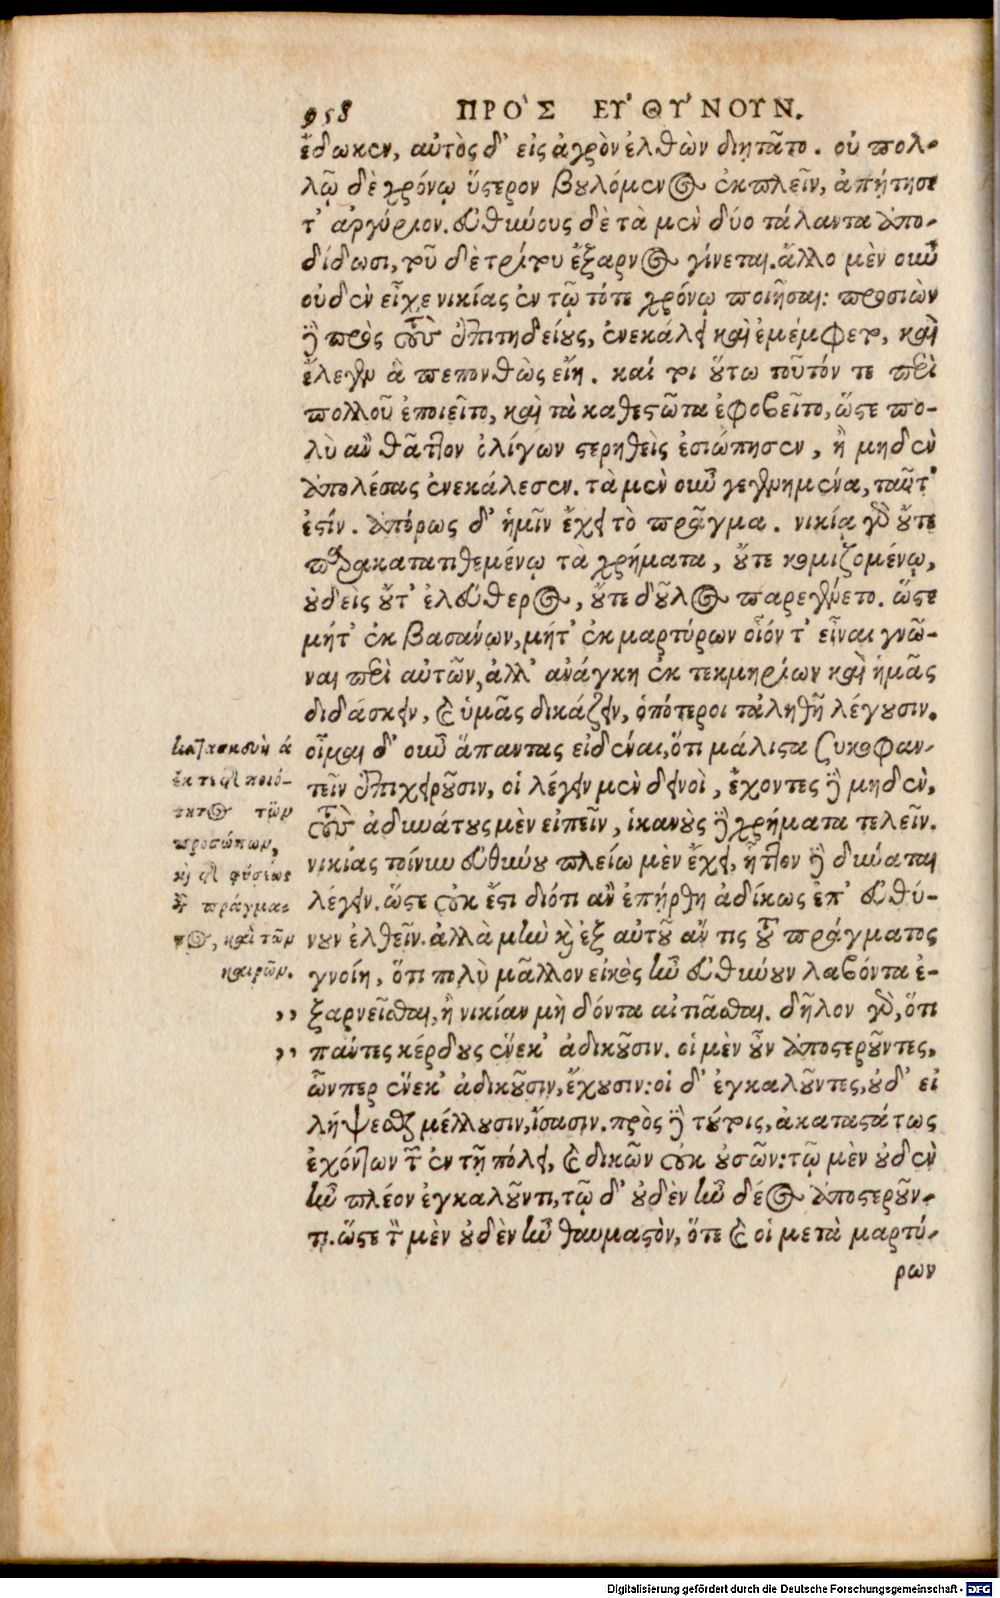 958 ΠΡΟ῾Σ ΕΥ᾽ΘΥ᾽ΝΟΥΝ.
ἔδωκεν, αὐτὸς δ᾽ εἰς ἀγρὸν ἐλθὼν διῃτᾶτο. οὐ πολ-
λῷ δὲ χρόνῳ ὕστερον βουλόμενος ἐκπλεῖν, ἀπῄτησε
τ᾽ ἀργύριον. εὐθύνους δὲ τὰ μὲν δύο τάλαντα ἀπο-
δίδωσι, τοῦ δὲ τρίτου ἔξαρνος γίνεται. ἄλλο μὲν οὖν
οὐδὲν εἶχε νικίας ἐν τῷ τότε χρόνῳ ποιῆσαι: προσιὼν
δὲ πρὸς τοὺς ἐπιτηδείους, ἐνεκάλει καὶ ἐμέμφετο, καὶ
ἔλεγεν ἃ πεπονθὼς εἴη. καί τοι οὕτω τοῦτόν τε περὶ
πολλοῦ ἐποιεῖτο, καὶ τὰ καθεστῶτα ἐφοβεῖτο, ὥστε πο-
λὺ ἂν θᾶττον ὀλίγων στερηθεὶς ἐσιώπησεν, ἢ μηδὲν
ἀπολέσας ἐνεκάλεσεν. τὰ μὲν οὖν γεγενημένα, ταῦτ᾽
ἐστίν. ἀπόρως δ᾽ ἡμῖν ἔχει τὸ πρᾶγμα. νικίᾳ γὰρ οὔτε
παρακατατιθεμένῳ τὰ χρήματα, οὔτε κομιζομένῳ,
οὐδεὶς οὔτ᾽ ἐλεύθερος, οὔτε δοῦλος παρεγένετο. ὥστε
μήτ᾽ ἐκ βασάνων, μήτ᾽ ἐκ μαρτύρων οἷόν τ᾽ εἶναι γνῶ-
ναι περὶ αὐτῶν, ἀλλ᾽ ἀνάγκη ἐκ τεκμηρίων καὶ ἡμᾶς
διδάσκειν, καὶ ὑμᾶς δικάζειν, ὁπότεροι τἀληθῆ λέγουσιν.
οἶμαι δ᾽ οὖν ἅπαντας εἰδέναι, ὅτι μάλιστα συκοφαν-
τεῖν ἐπιχειροῦσιν, οἱ λέγειν μὲν δεινοὶ, ἔχοντες δὲ μηδὲν,
τοὺς ἀδυνάτους μὲν εἰπεῖν, ἱκανοὺς δὲ χρήματα τελεῖν.
νικίας τοίνυν εὐθύνου πλείω μὲν ἔχει, ἧττον δὲ δύναται
λέγειν. ὥστε οὐκ ἔστι διότι ἂν ἐπήρθη ἀδίκως ἐπ᾽ εὐθύ-
νουν ἐλθεῖν. ἀλλὰ μὴν καὶ ἐξ αὐτοῦ ἄν τις τοῦ πράγματος
γνοίη, ὅτι πολὺ μᾶλλον εἰκὸς ἦν εὐθύνουν λαβόντα ἐ-
ξαρνεῖσθαι, ἢ νικίαν μὴ δόντα αἰτιᾶσθαι. δῆλον γὰρ, ὅτι
πάντες κέρδους ἕνεκ᾽ ἀδικοῦσιν. οἱ μὲν οὖν ἀποστεροῦντες,
ὧνπερ ἕνεκ᾽ ἀδικοῦσιν, ἔχουσιν: οἱ δ᾽ ἐγκαλοῦντες, οὐδ᾽ εἰ
λήψεσθαι μέλλουσιν, ἴσασιν. πρὸς δὲ τούτοις, ἀκαταστάτως
ἐχόντων τῶν ἐν τῇ πόλει, καὶ δικῶν οὐκ οὐσῶν: τῷ μὲν οὐδὲν
ἦν πλέον ἐγκαλοῦντι, τῷ δ᾽ οὐδὲν ἦν δέος ἀποστεροῦν-
τι. ὥστε τὸ μὲν οὐδὲν ἦν θαυμαστὸν, ὅτε καὶ οἱ μετὰ μαρτύ-
ρων
κατασκευὴ ἁ
ἐκ τῆς ποιό-
τητος τῶν
προσώπων,
καὶ τῆς φύσεως
τοῦ πράγμα-
τος, καὶ τῶν
καιρῶν.
,,
,,
Digitalisierung gefördert durch die Deutsche Forschungsgemeinschaft - DFG